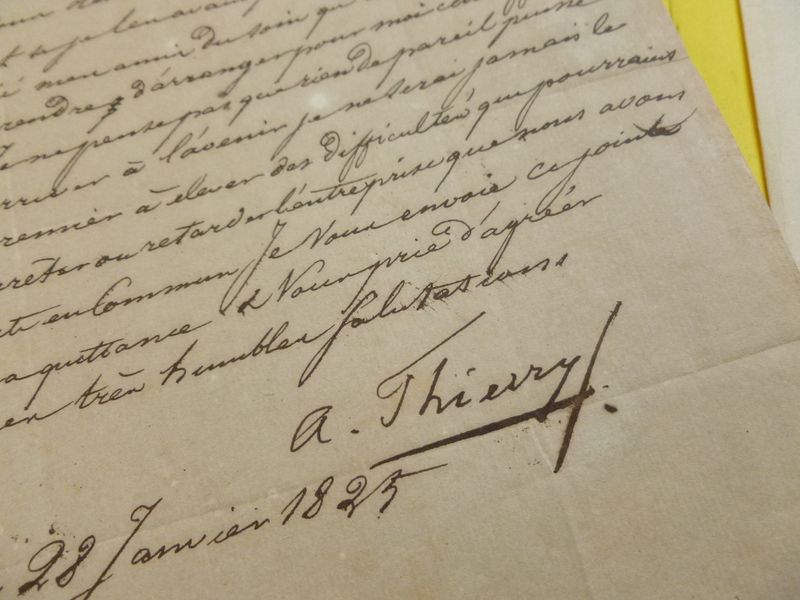 meu ami du soin qu
rendre d'arranger pour moi
ne pense pas que rien de pareil puisse
arriver à l'avenir je ne serai jamais le
premier à elever des difficultés que pourraient
arrêter ou retarder l'entreprise que nous avons
en Commun Je Vous envoie ci jointe
quittance & Vous prie d'agréér
très humbles Salutations
A. Thierry
28 Janvier 1825